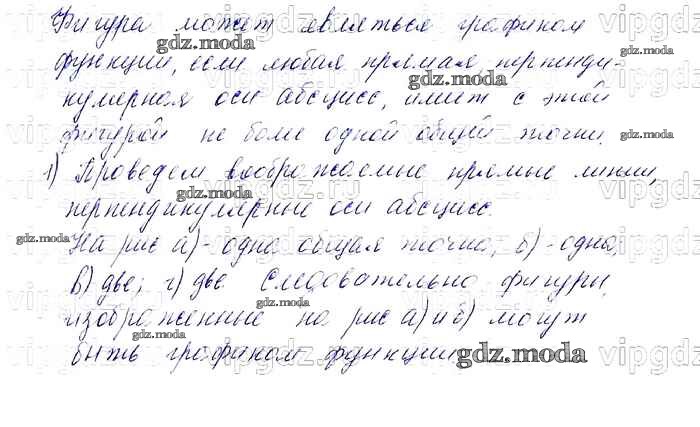 Фигура может являться графиком
gdz.moda
gdz.moda
функции, если любая прямая, перпенди-
gdz.moda
кулярная оси абсцисс, имеет с этой
фигурой не более одной общей точки.
gdz.moda
1) Проведем воображаемые прямые линии,
gdz.moda
перпендикулярные оси абсцисс.
gdz.moda
На рис а)-одна общая точка; б)-одна;
в) две; г) две Следовательно фигуры,
gdz.moda
изображенные на рис а) и б) могут
gdz.moda
быть графиком функции
gdz.moda
vipgdz.ru